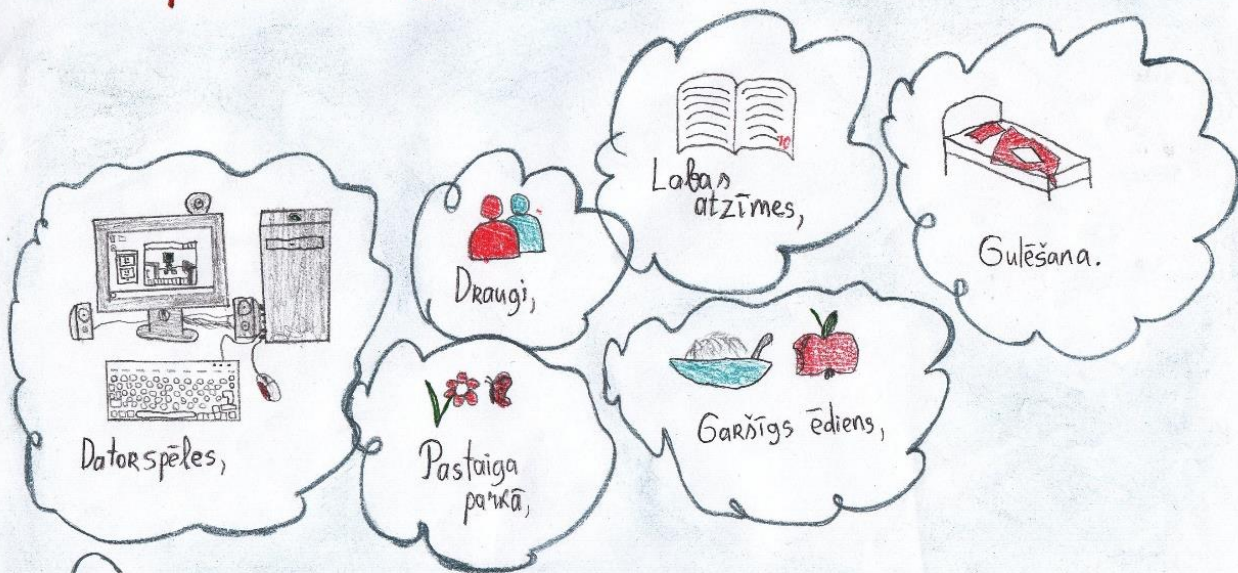 Datorspēles,
Draugi,
Pastaiga
parkā,
Labas
atzīmes,
Garšīgs ēdiens,
Gulēšana.